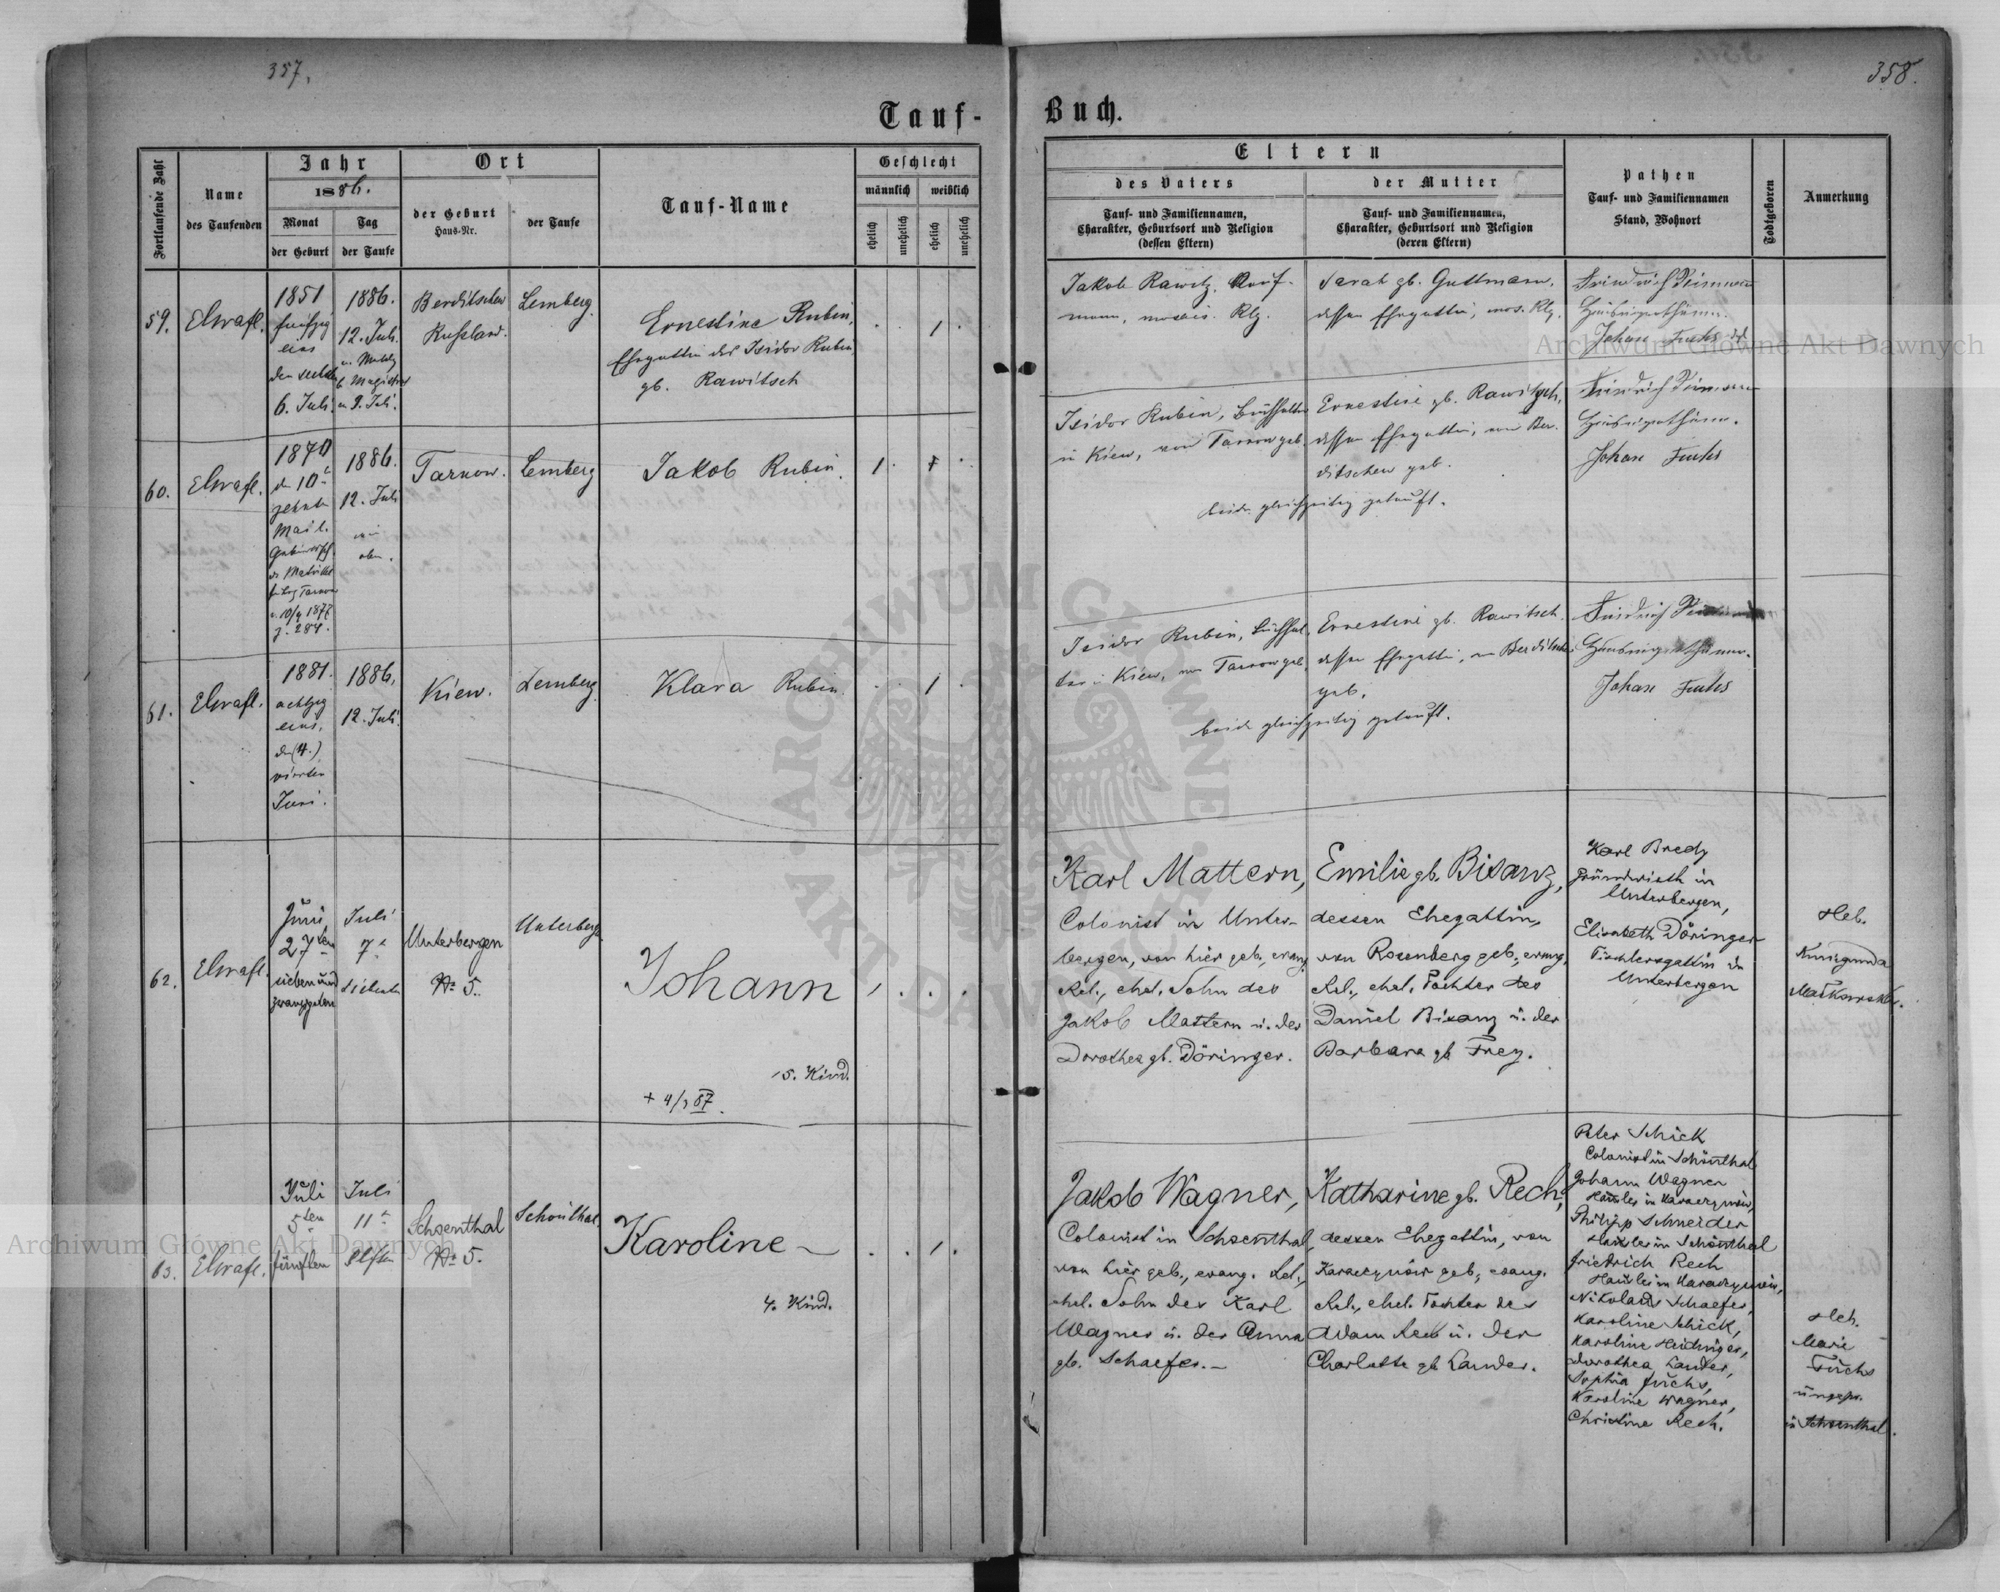 357.
358.
Tauf-
Buch.
Fortlaufende Zahl
Name
des Taufenden
Jahr
1886.
Monat
der Geburt
Tag
der Taufe
Ort
der Geburt
Haus-Nr.
der Taufe
Tauf-Name
Geschlecht
männlich
weiblich
ehelich
unehelich
ehelich
unehelich
Eltern
des Vaters
Tauf- und Familiennamen,
Charakter, Geburtsort und Religion
(dessen Eltern)
der Mutter
Tauf- und Familiennamen,
Charakter, Geburtsort und Religion
(deren Eltern)
Pathen
Tauf- und Familiennamen
Stand, Wohnort
Todtgeboren
Anmerkung
59.
1851
fünfzig
eins
6. Juli
1886.
12. Juli
Berditschew
Russland.
Lemberg.
Ernestine Rubin,
Ehegattin des Isidor Rubin
gb. Rawitsch
Jakob Rawitz, Kauf-
mann, mosais. Rlg.
Sarah gb. Guttmann,
dessen Ehegattin, mos. Rlg.
Johann Fuchs
60.
1870
den 10t
zehnten
Mai
1886.
12. Juli
wie
oben.
Tarnow.
Lemberg
Jakob Rubin.
Isidor Rubin, Buchhalter
in Kiew, von Tarnow geb.
Ernestine gb. Rawitsch,
dessen Ehegattin, von Ber-
ditschew geb.
beide gleichzeitig getauft.
Johann Fuchs
61.
1881.
achtzig
eins,
den (4.)
vierten
Juni.
1886,
12. Juli.
Kiew.
Lemberg
Klara Rubin.
Isidor Rubin, Buchhal-
ter in Kiew, von Tarnow geb.
Ernestine gb. Rawitsch
dessen Ehegattin, von Berditschew
geb.
beide gleichzeitig getauft.
Johann Fuchs
62.
Juni
27ten
sieben und
zwanzigsten
Juli
7t
siebenten
Unterbergen
No 5.
Unterberg.
Johann
5. Kind.
Karl Mattern,
Colonist in Unter-
bergen, von hier geb., evang.
Rel., ehel. Sohn des
Jakob Mattern u. der
Dorothea gb. Döringer.
Emilie gb. Bisanz,
dessen Ehegattin,
von Rosenberg geb., evang.
Rel., ehel. Tochter des
Daniel Bisanz u. der
Barbara gb. Frey.
Karl Bredy
Grundwirth in
Unterbergen,
Elisabeth Döringer
Tischlersgattin in
Unterbergen
Heb.
Kunigunda
63.
Juli
5ten
fünften
Juli
11t
elften
Schoenthal
No 5.
Schönthal
Karoline
4. Kind.
Jakob Wagner,
Colonist in Schoenthal,
von hier geb., evang. Rel.,
ehel. Sohn des Karl
Wagner u. der Anna
gb. Schaefer.
Katharine gb. Rech,
dessen Ehegattin, von
geb., evang.
Rel., ehel. Tochter des
Adam Rech u. der
Charlotte gb. Lander.
Peter Schick
Colonist in Schönthal
Johann Wagner
Philipp Schneider
in Schönthal
Friedrich Rech
Nikolaus Schaefer,
Karoline Schick,
Karoline Heidinger,
Dorothea Lander,
Sophia Fuchs,
Karoline Wagner,
Christine Rech.
Heb.
Marie
Fuchs
ungepr.
in Schoenthal.
Archiwum Główne Akt Dawnych
Archiwum Główne Akt Dawnych
ARCHIWUM GŁÓWNE AKT DAWNYCH